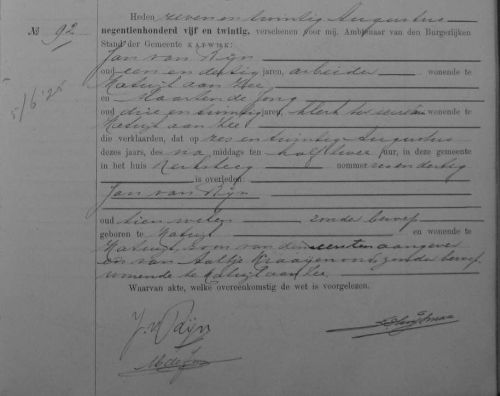 Heden zeven en twintig Augustus
№ 92 negentienhonderd vijf en twintig, verschenen voor mij, Ambtenaar van den Burgerlijken
Stand der Gemeente KATWIJK:
Jan van Rijn
oud een en dertig jaren, arbeider wonende te
Katwijk aan Zee
en Maarten de Jong
oud drie en twintig jaren, klerk ter secretarie wonende te
Katwijk aan Zee
die verklaarden, dat op zes en twintig Augustus
dezes jaars, des na middags ten half twee ure, in deze gemeente
in het huis nommer zes en dertig
is overleden
Jan van Rijn
oud tien weken zonder beroep
geboren te Katwijk en wonende te
Katwijk zoon van den eersten aangever
en van Aaltje zonder beroep
wonende te Katwijk aan Zee.
Waarvan akte, welke overeenkomstig de wet is voorgelezen.
J. v Rijn
M de Jong